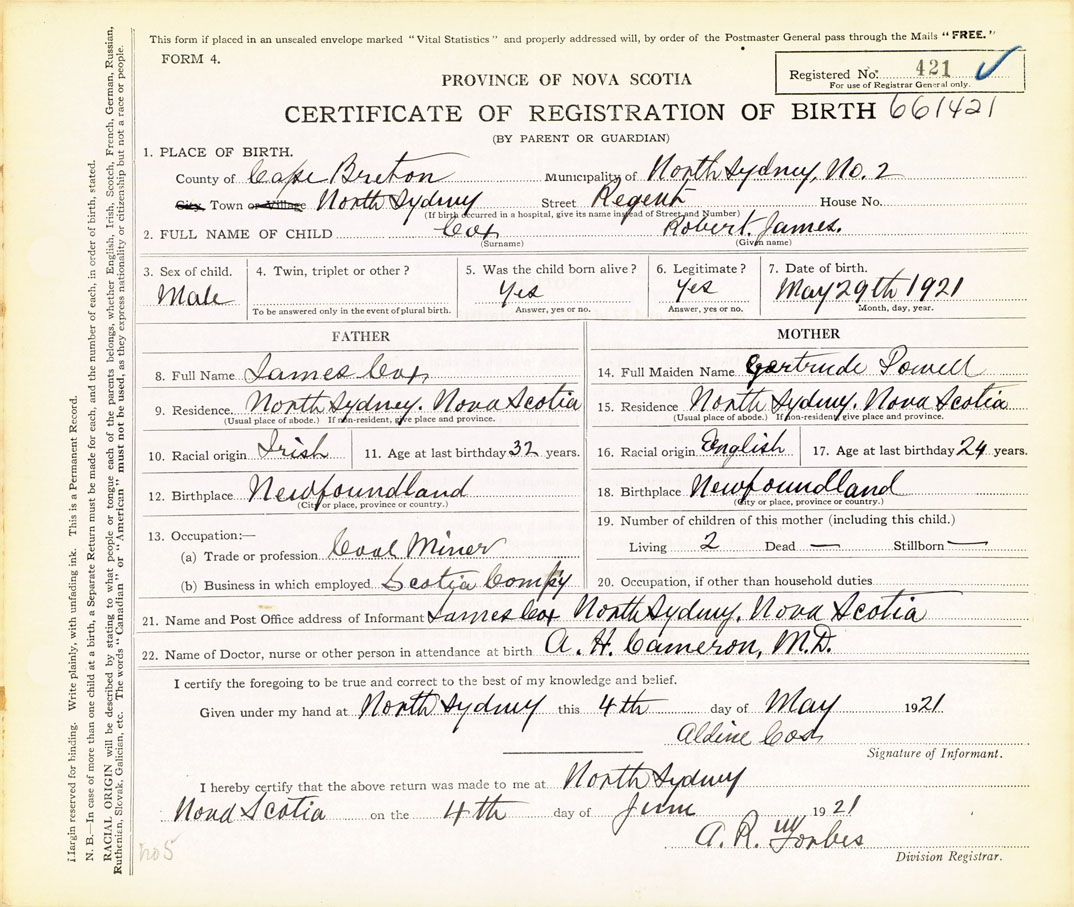 This form if placed in an unsealed envelope marked "Vital Statistics" and properly addressed will, by order of the Postmaster General pass through the Mails "FREE."
FORM 4.
Registered No. 421
For use of Registrar General only.
PROVINCE OF NOVA SCOTIA
CERTIFICATE OF REGISTRATION OF BIRTH 661421
(BY PARENT OR GUARDIAN)
1. PLACE OF BIRTH.
County of Cape Breton Municipality of North Sydney, No. 2
City Town or Village North Sydney Street Regent House No.
(If birth occurred in a hospital, give its name instead of Street and Number)
2. FULL NAME OF CHILD Cox Robert James.
(Surname) (Given name)
3. Sex of child. 4. Twin, triplet or other? 5. Was the child born alive? 6. Legitimate? 7. Date of birth.
Male Yes Yes May 29th 1921
To be answered only in the event of plural birth. Answer, yes or no. Answer, yes or no. Month, day, year.
FATHER
8. Full Name James Cox
9. Residence. North Sydney. Nova Scotia
(Usual place of abode.) If non-resident, give place and province.
10. Racial origin Irish 11. Age at last birthday 32 years.
12. Birthplace Newfoundland
(City or place, province or country.)
13. Occupation:—
(a) Trade or profession Coal Miner
(b) Business in which employed Scotia Compy
MOTHER
14. Full Maiden Name Gertrude Powell
15. Residence North Sydney. Nova Scotia
(Usual place of abode.) If non-resident, give place and province.
16. Racial origin English 17. Age at last birthday 24 years.
18. Birthplace Newfoundland
(City or place, province or country.)
19. Number of children of this mother (including this child.)
Living 2 Dead — Stillborn —
20. Occupation, if other than household duties
21. Name and Post Office address of Informant James Cox North Sydney. Nova Scotia
22. Name of Doctor, nurse or other person in attendance at birth A. H. Cameron, M.D.
I certify the foregoing to be true and correct to the best of my knowledge and belief.
Given under my hand at North Sydney this 4th day of May 1921
Aldine Cox
Signature of Informant.
I hereby certify that the above return was made to me at North Sydney
Nova Scotia on the 4th day of June 1921
A. R. Forbes
Division Registrar.
no 5
Margin reserved for binding. Write plainly, with unfading ink. This is a Permanent Record.
N. B.—In case of more than one child at a birth, a Separate Return must be made for each, and the number of each, in order of birth, stated.
RACIAL ORIGIN will be described by stating to what people or tongue each of the parents belongs, whether English, Irish, Scotch, French, German, Russian,
Ruthenian, Slovak, Galician, etc. The words "Canadian" or "American" must not be used, as they express nationality or citizenship but not a race or people.